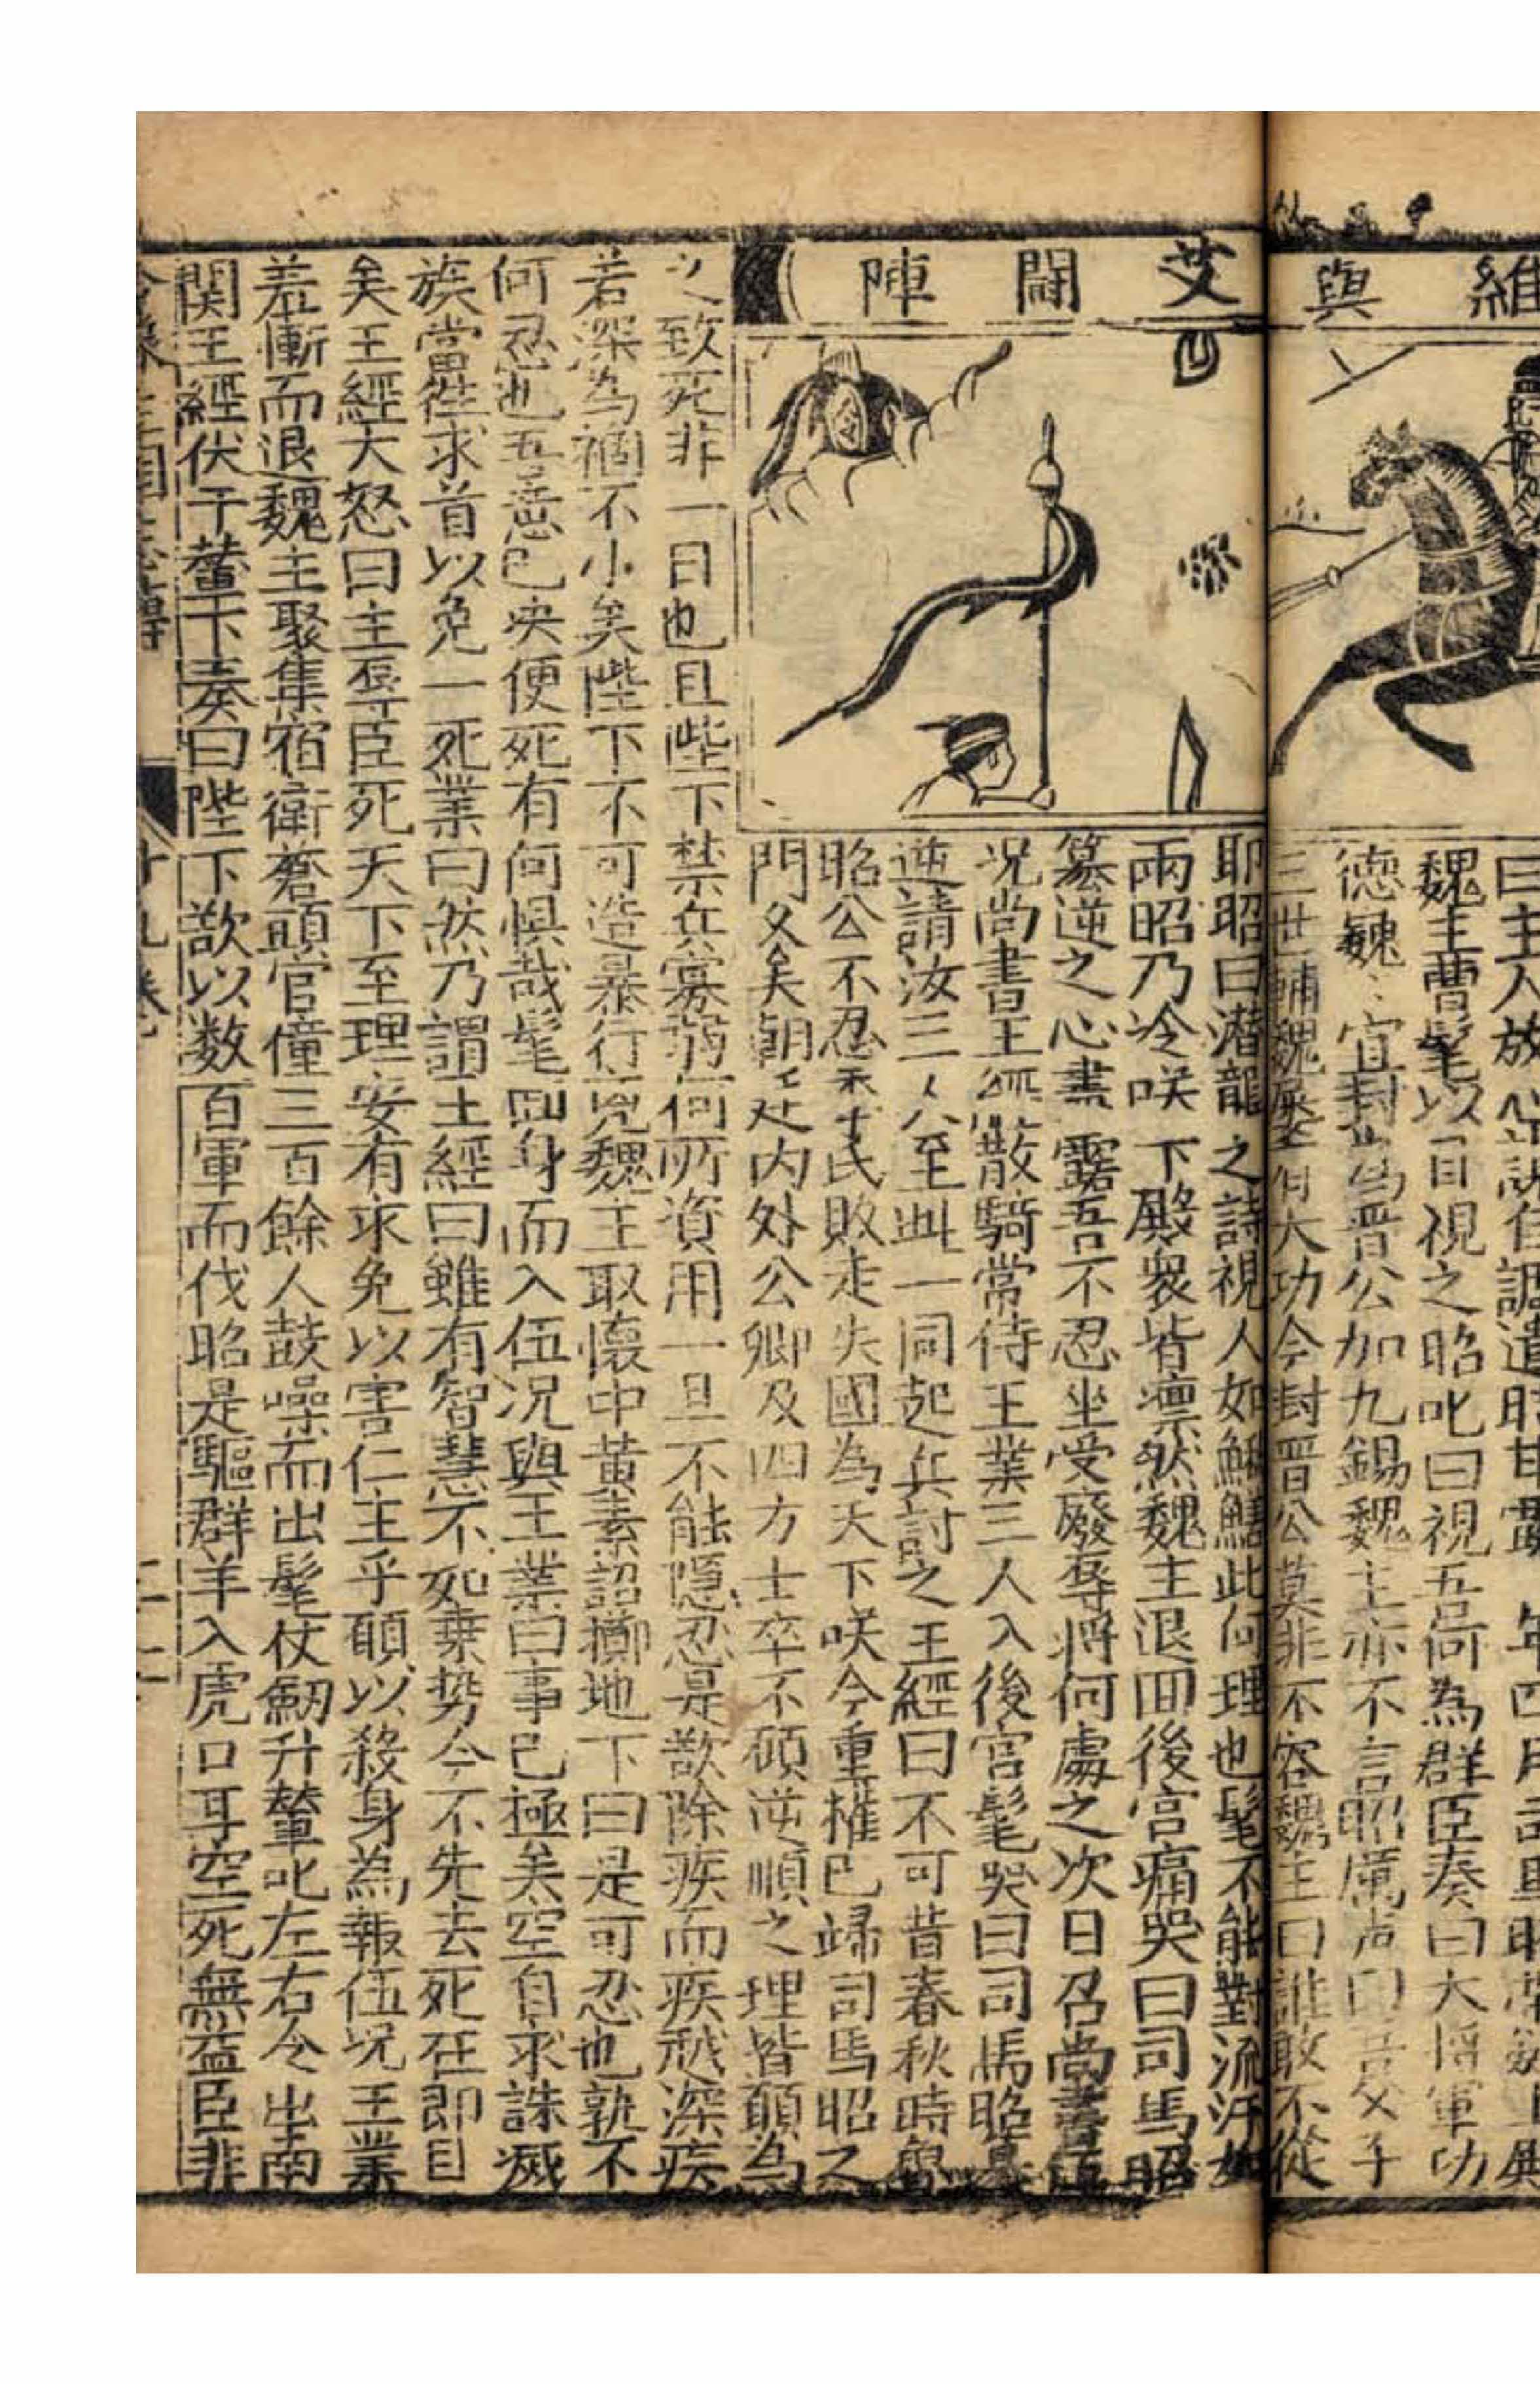 維與
艾鬭陣
曰主人放心
魏主曹髦以目視之昭叱曰視吾何為群臣奏曰大將軍功
德巍〻宜封為晋公加九錫魏主亦不言昭厲声曰吾父子
三世輔魏屡有大功今封晋公莫非不容魏主曰誰敢不從
耶昭曰潜龍之詩視人如鰍鱔此何理也髦不能對流汗如
雨昭乃冷咲下殿衆皆凛然魏主退囬後宫痛哭曰司馬昭
篡逆之心盡露吾不忍坐受廢辱將何處之次日召尚書王
况尚書王經散騎常侍王業三人入後宫髦哭曰司馬昭
逆請汝三人至此一同起兵討之王經曰不可昔春秋時魯
昭公不忍季氏敗走失國為天下咲今重権已歸司馬昭之
門久矣朝廷内外公卿及四方士卒不碩逆順之理皆願為
之致死非一日也且陛下禁兵寡弱何所資用一旦不能隱忍是欲除疾而疾越深疾
若深為禍不小矣陛下不可造暴行魏主取懷中黄素詔擲地下曰是可忍也孰不
何忍也吾意已决便死有何惧哉髦囬身而入伍况與王業曰事已極矣空自求誅滅
族當往求首以免一死業曰然乃謂王經曰雖有智慧不如乗势今不先去死在即目
矣王經大怒曰主辱臣死天下至理安有求免以害仁主乎願以殺身為報伍况王業
羞慚而退魏主聚集宿衛蒼頭官僮三百餘人鼓噪而出髦仗劒升輦叱左右令出南
関王經伏于輦下奏曰陛下欲以数百軍而伐昭是驅群羊入虎口耳空死無益臣非
三國志傳
十九卷